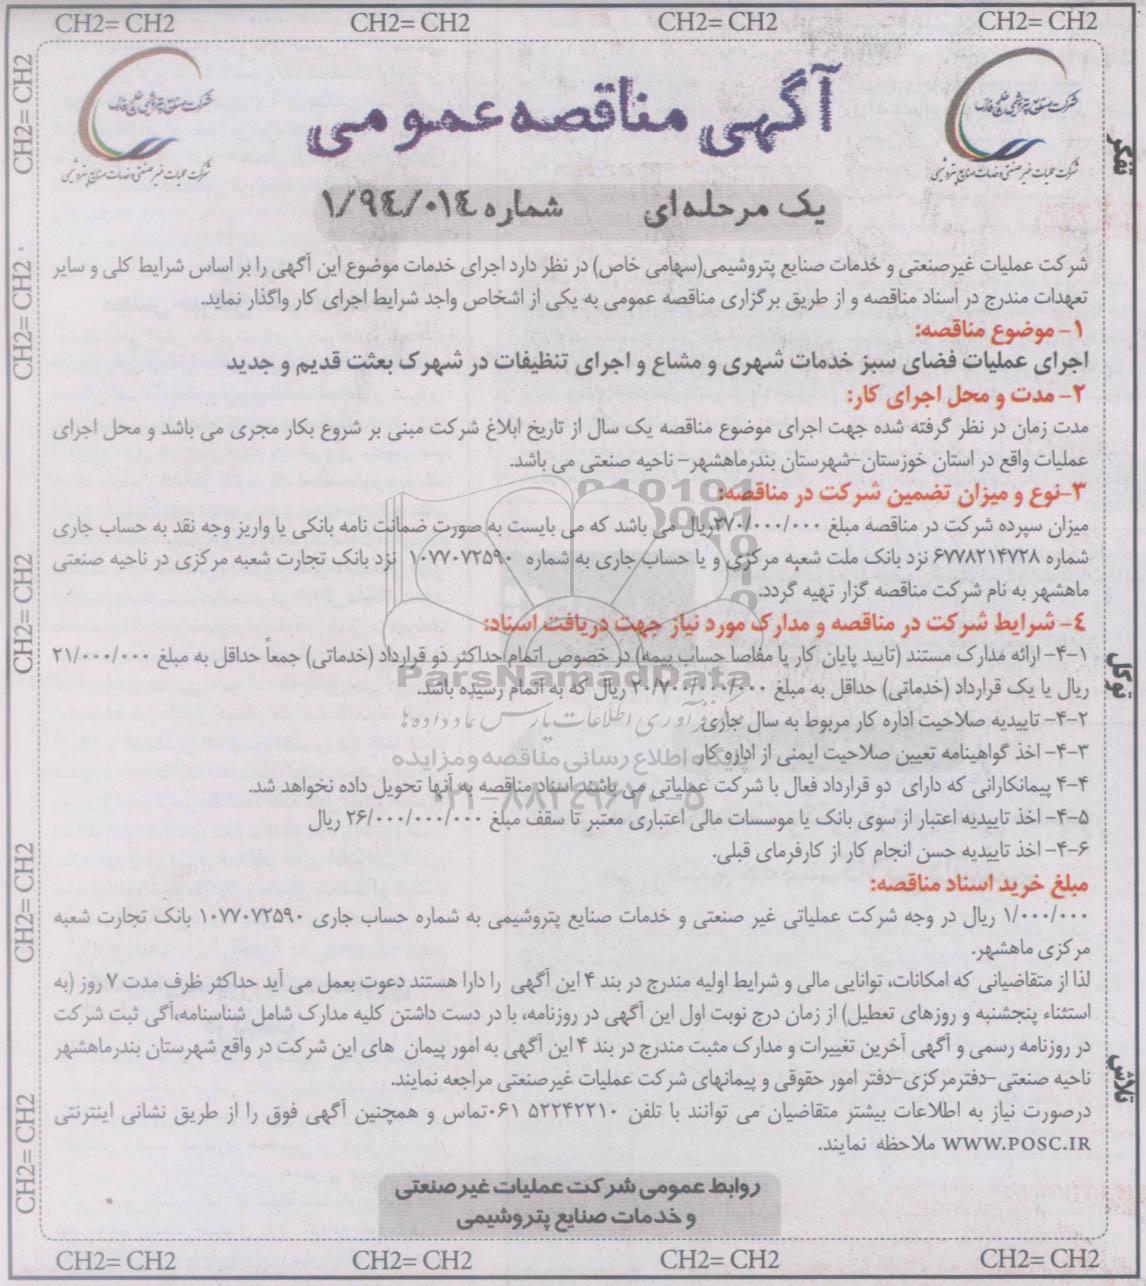 CH2= CH2 CH2= CH2 CH2= CH2 CH2= CH2
شرکت صنایع پتروشیمی خلیج فارس
شرکت عملیات غیرصنعتی و خدمات صنایع پتروشیمی
آگهی مناقصه عمومی
شرکت صنایع پتروشیمی خلیج فارس
شرکت عملیات غیرصنعتی و خدمات صنایع پتروشیمی
یک مرحله ای شماره ۱/۹٤/۰۱٤
شرکت عملیات غیرصنعتی و خدمات صنایع پتروشیمی(سهامی خاص) در نظر دارد اجرای خدمات موضوع این آگهی را بر اساس شرایط کلی و سایر
تعهدات مندرج در اسناد مناقصه و از طریق برگزاری مناقصه عمومی به یکی از اشخاص واجد شرایط اجرای کار واگذار نماید.
۱- موضوع مناقصه:
اجرای عملیات فضای سبز خدمات شهری و مشاع و اجرای تنظیفات در شهرک بعثت قدیم و جدید
۲- مدت و محل اجرای کار:
مدت زمان در نظر گرفته شده جهت اجرای موضوع مناقصه یک سال از تاریخ ابلاغ شرکت مبنی بر شروع بکار مجری می باشد و محل اجرای
عملیات واقع در استان خوزستان–شهرستان بندرماهشهر– ناحیه صنعتی می باشد.
۳-نوع و میزان تضمین شرکت در مناقصه:
میزان سپرده شرکت در مناقصه مبلغ ۳۷۰/۰۰۰/۰۰۰ریال می باشد که می بایست به صورت ضمانت نامه بانکی یا واریز وجه نقد به حساب جاری
شماره ۶۷۷۸۲۱۴۷۲۸ نزد بانک ملت شعبه مرکزی و یا حساب جاری به شماره ۱۰۷۷۰۷۲۵۹۰ نزد بانک تجارت شعبه مرکزی در ناحیه صنعتی
ماهشهر به نام شرکت مناقصه گزار تهیه گردد.
٤- شرایط شرکت در مناقصه و مدارک مورد نیاز جهت دریافت اسناد:
۴-۱- ارائه مدارک مستند (تایید پایان کار یا مفاصا حساب بیمه) در خصوص اتمام حداکثر دو قرارداد (خدماتی) جمعا حداقل به مبلغ ۲۱/۰۰۰/۰۰۰
ریال یا یک قرارداد (خدماتی) حداقل به مبلغ ۲۰/۷۰۰/۰۰۰/۰۰۰ ریال که به اتمام رسیده باشد.
۴-۲- تاییدیه صلاحیت اداره کار مربوط به سال جاری.
۴-۳- اخذ گواهینامه تعیین صلاحیت ایمنی از اداره کار
۴-۴ پیمانکارانی که دارای دو قرارداد فعال با شرکت عملیاتی می باشند اسناد مناقصه به آنها تحویل داده نخواهد شد.
۴-۵- اخذ تاییدیه اعتبار از سوی بانک یا موسسات مالی اعتباری معتبر تا سقف مبلغ ۲۶/۰۰۰/۰۰۰/۰۰۰ ریال
۴-۶- اخذ تاییدیه حسن انجام کار از کارفرمای قبلی.
مبلغ خرید اسناد مناقصه:
۱/۰۰۰/۰۰۰ ریال در وجه شرکت عملیاتی غیر صنعتی و خدمات صنایع پتروشیمی به شماره حساب جاری ۱۰۷۷۰۷۲۵۹۰ بانک تجارت شعبه
مرکزی ماهشهر.
لذا از متقاضیانی که امکانات، توانایی مالی و شرایط اولیه مندرج در بند ۴ این آگهی را دارا هستند دعوت بعمل می آید حداکثر ظرف مدت ۷ روز (به
استثناء پنجشنبه و روزهای تعطیل) از زمان درج نوبت اول این آگهی در روزنامه، با در دست داشتن کلیه مدارک شامل شناسنامه،آگی ثبت شرکت
در روزنامه رسمی و آگهی آخرین تغییرات و مدارک مثبت مندرج در بند ۴ این آگهی به امور پیمان های این شرکت در واقع شهرستان بندرماهشهر
ناحیه صنعتی–دفترمرکزی–دفتر امور حقوقی و پیمانهای شرکت عملیات غیرصنعتی مراجعه نمایند.
درصورت نیاز به اطلاعات بیشتر متقاضیان می توانند با تلفن ۵۲۲۴۲۲۱۰ ۰۶۱تماس و همچنین آگهی فوق را از طریق نشانی اینترنتی
WWW.POSC.IR ملاحظه نمایند.
روابط عمومی شرکت عملیات غیرصنعتی
و خدمات صنایع پتروشیمی
CH2= CH2 CH2= CH2 CH2= CH2 CH2= CH2
CH2= CH2
CH2= CH2
CH2= CH2
CH2= CH2
CH2= CH2
تفکر
توکل
تلاش
ParsNamadData
فن آوری اطلاعات پارس نماد داده ها
پایگاه اطلاع رسانی مناقصه و مزایده
۰۲۱-۸۸۳۴۹۶۷۰-۵